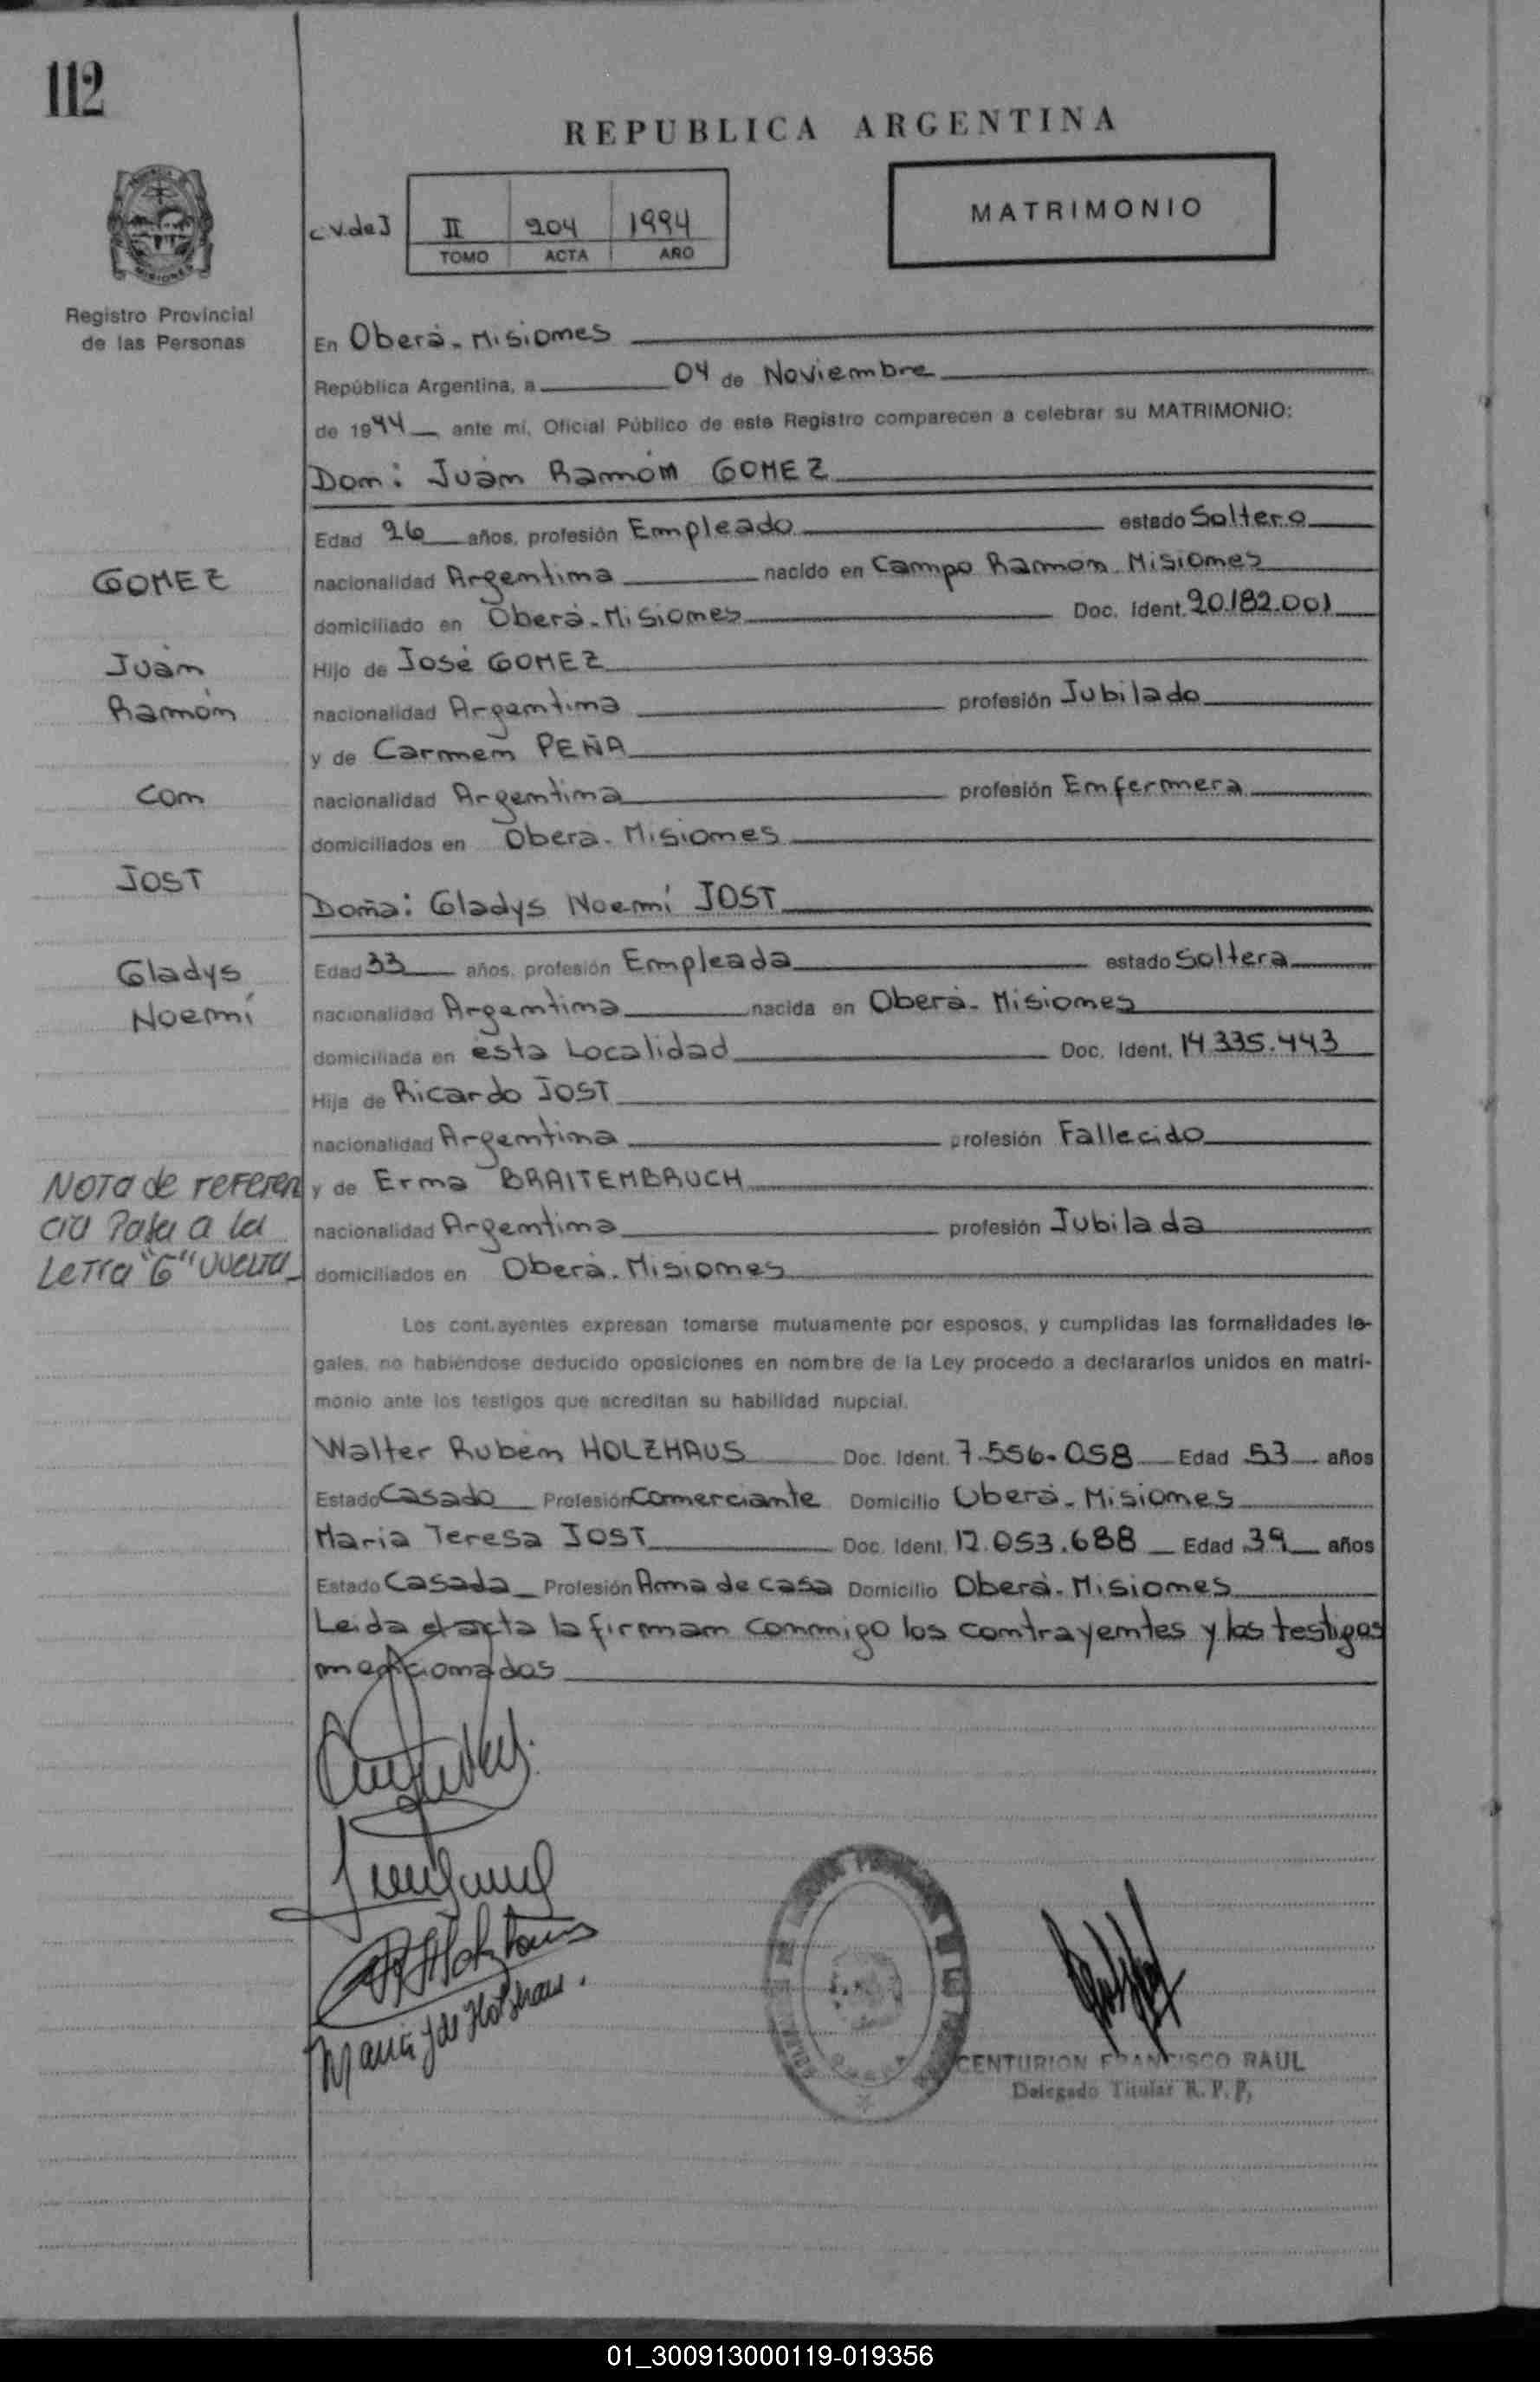 112
REPUBLICA ARGENTINA
C.V.deJ II 204 1994
TOMO ACTA AÑO
MATRIMONIO
Registro Provincial
de las Personas
En Oberá-Misiones
República Argentina, a 04 de Noviembre
de 1994 ante mí, Oficial Público de este Registro comparecen a celebrar su MATRIMONIO:
Don: Juan Ramón GOMEZ
Edad 26 años, profesión Empleado estado Soltero
nacionalidad Argentina nacido en Campo Ramón-Misiones
domiciliado en Oberá-Misiones Doc. Ident. 20.182.001
Hijo de José GOMEZ
nacionalidad Argentina profesión Jubilado
y de Carmen PEÑA
nacionalidad Argentina profesión Enfermera
domiciliados en Oberá-Misiones
Doña: Gladys Noemí JOST
Edad 33 años, profesión Empleada estado Soltera
nacionalidad Argentina nacida en Oberá-Misiones
domiciliada en esta Localidad Doc. Ident. 14.335.443
Hija de Ricardo JOST
nacionalidad Argentina profesión Fallecido
y de Erma BRAITEMBRUCH
nacionalidad Argentina profesión Jubilada
domiciliados en Oberá-Misiones
GOMEZ
Juan
Ramón
con
JOST
Gladys
Noemí
NOTA de referen
cia Pasa a la
Letra "G" vuelta
Los contrayentes expresan tomarse mutuamente por esposos, y cumplidas las formalidades le-
gales, no habiéndose deducido oposiciones en nombre de la Ley procedo a declararlos unidos en matri-
monio ante los testigos que acreditan su habilidad nupcial.
Walter Ruben HOLZHAUS Doc. Ident. 7.556.058 Edad 53 años
Estado Casado Profesión Comerciante Domicilio Oberá-Misiones
Maria Teresa JOST Doc. Ident. 12.053.688 Edad 39 años
Estado Casada Profesión Ama de casa Domicilio Oberá-Misiones
Leida el acta la firman conmigo los contrayentes y los testigos
mencionados
Maria J de Holzhaus.
CENTURION FRANCISCO RAUL
Delegado Titular R. P. P,
01_300913000119-019356